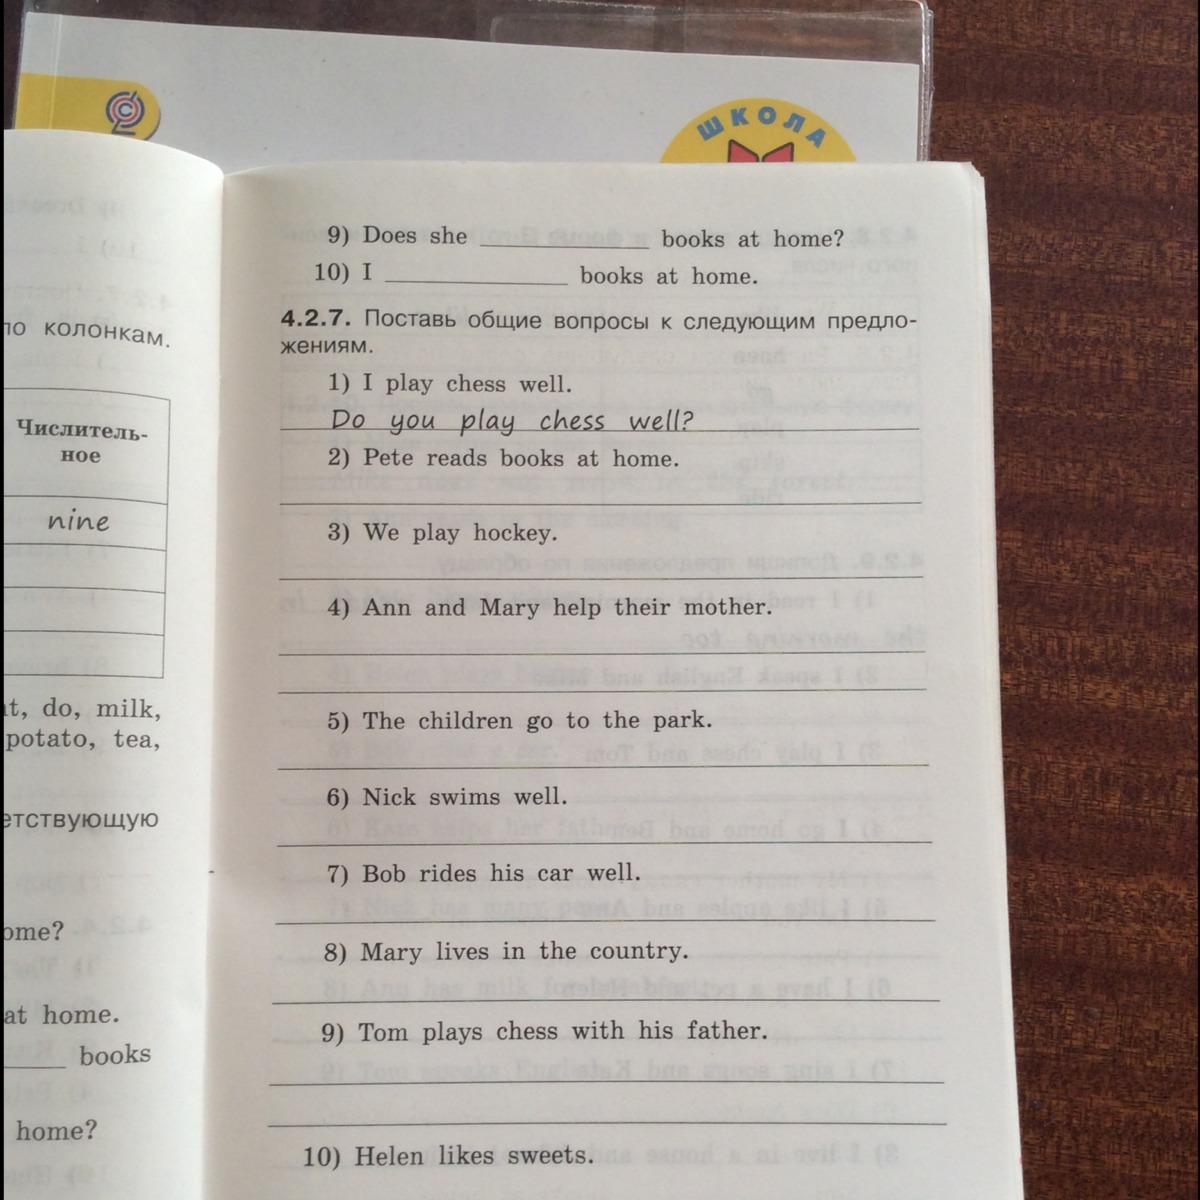 ШКОЛА
по колонкам.
Числитель-
ное
nine
do, milk,
potato, tea,
at home.
books
home?
9) Does she ____ books at home?
10) I ____ books at home.
4.2.7. Поставь общие вопросы к следующим предло-
жениям.
1) I play chess well.
Do you play chess well?
2) Pete reads books at home.
3) We play hockey.
4) Ann and Mary help their mother.
5) The children go to the park.
6) Nick swims well.
7) Bob rides his car well.
8) Mary lives in the country.
9) Tom plays chess with his father.
10) Helen likes sweets.